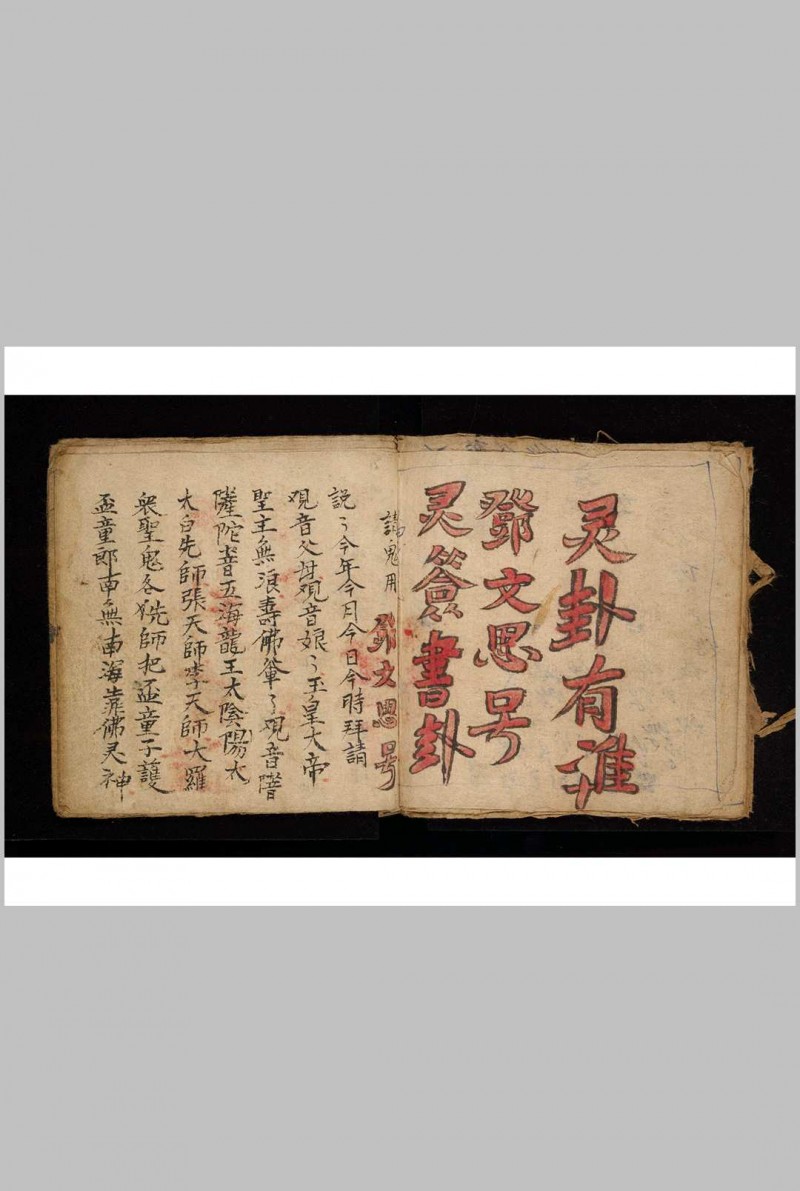 灵卦有準
鄧文思号
灵簽書卦
請鬼用 鄧文思号
説々今年今月今日今時拜請
观音父母观音娘々玉皇大帝
聖主無浪壽佛輩々观音階
薩陀普五海龍王太陰陽太
太白先師張天師李天師大羅
衆聖鬼各先師把盃童子護
盃童郎南無南海靠佛灵神